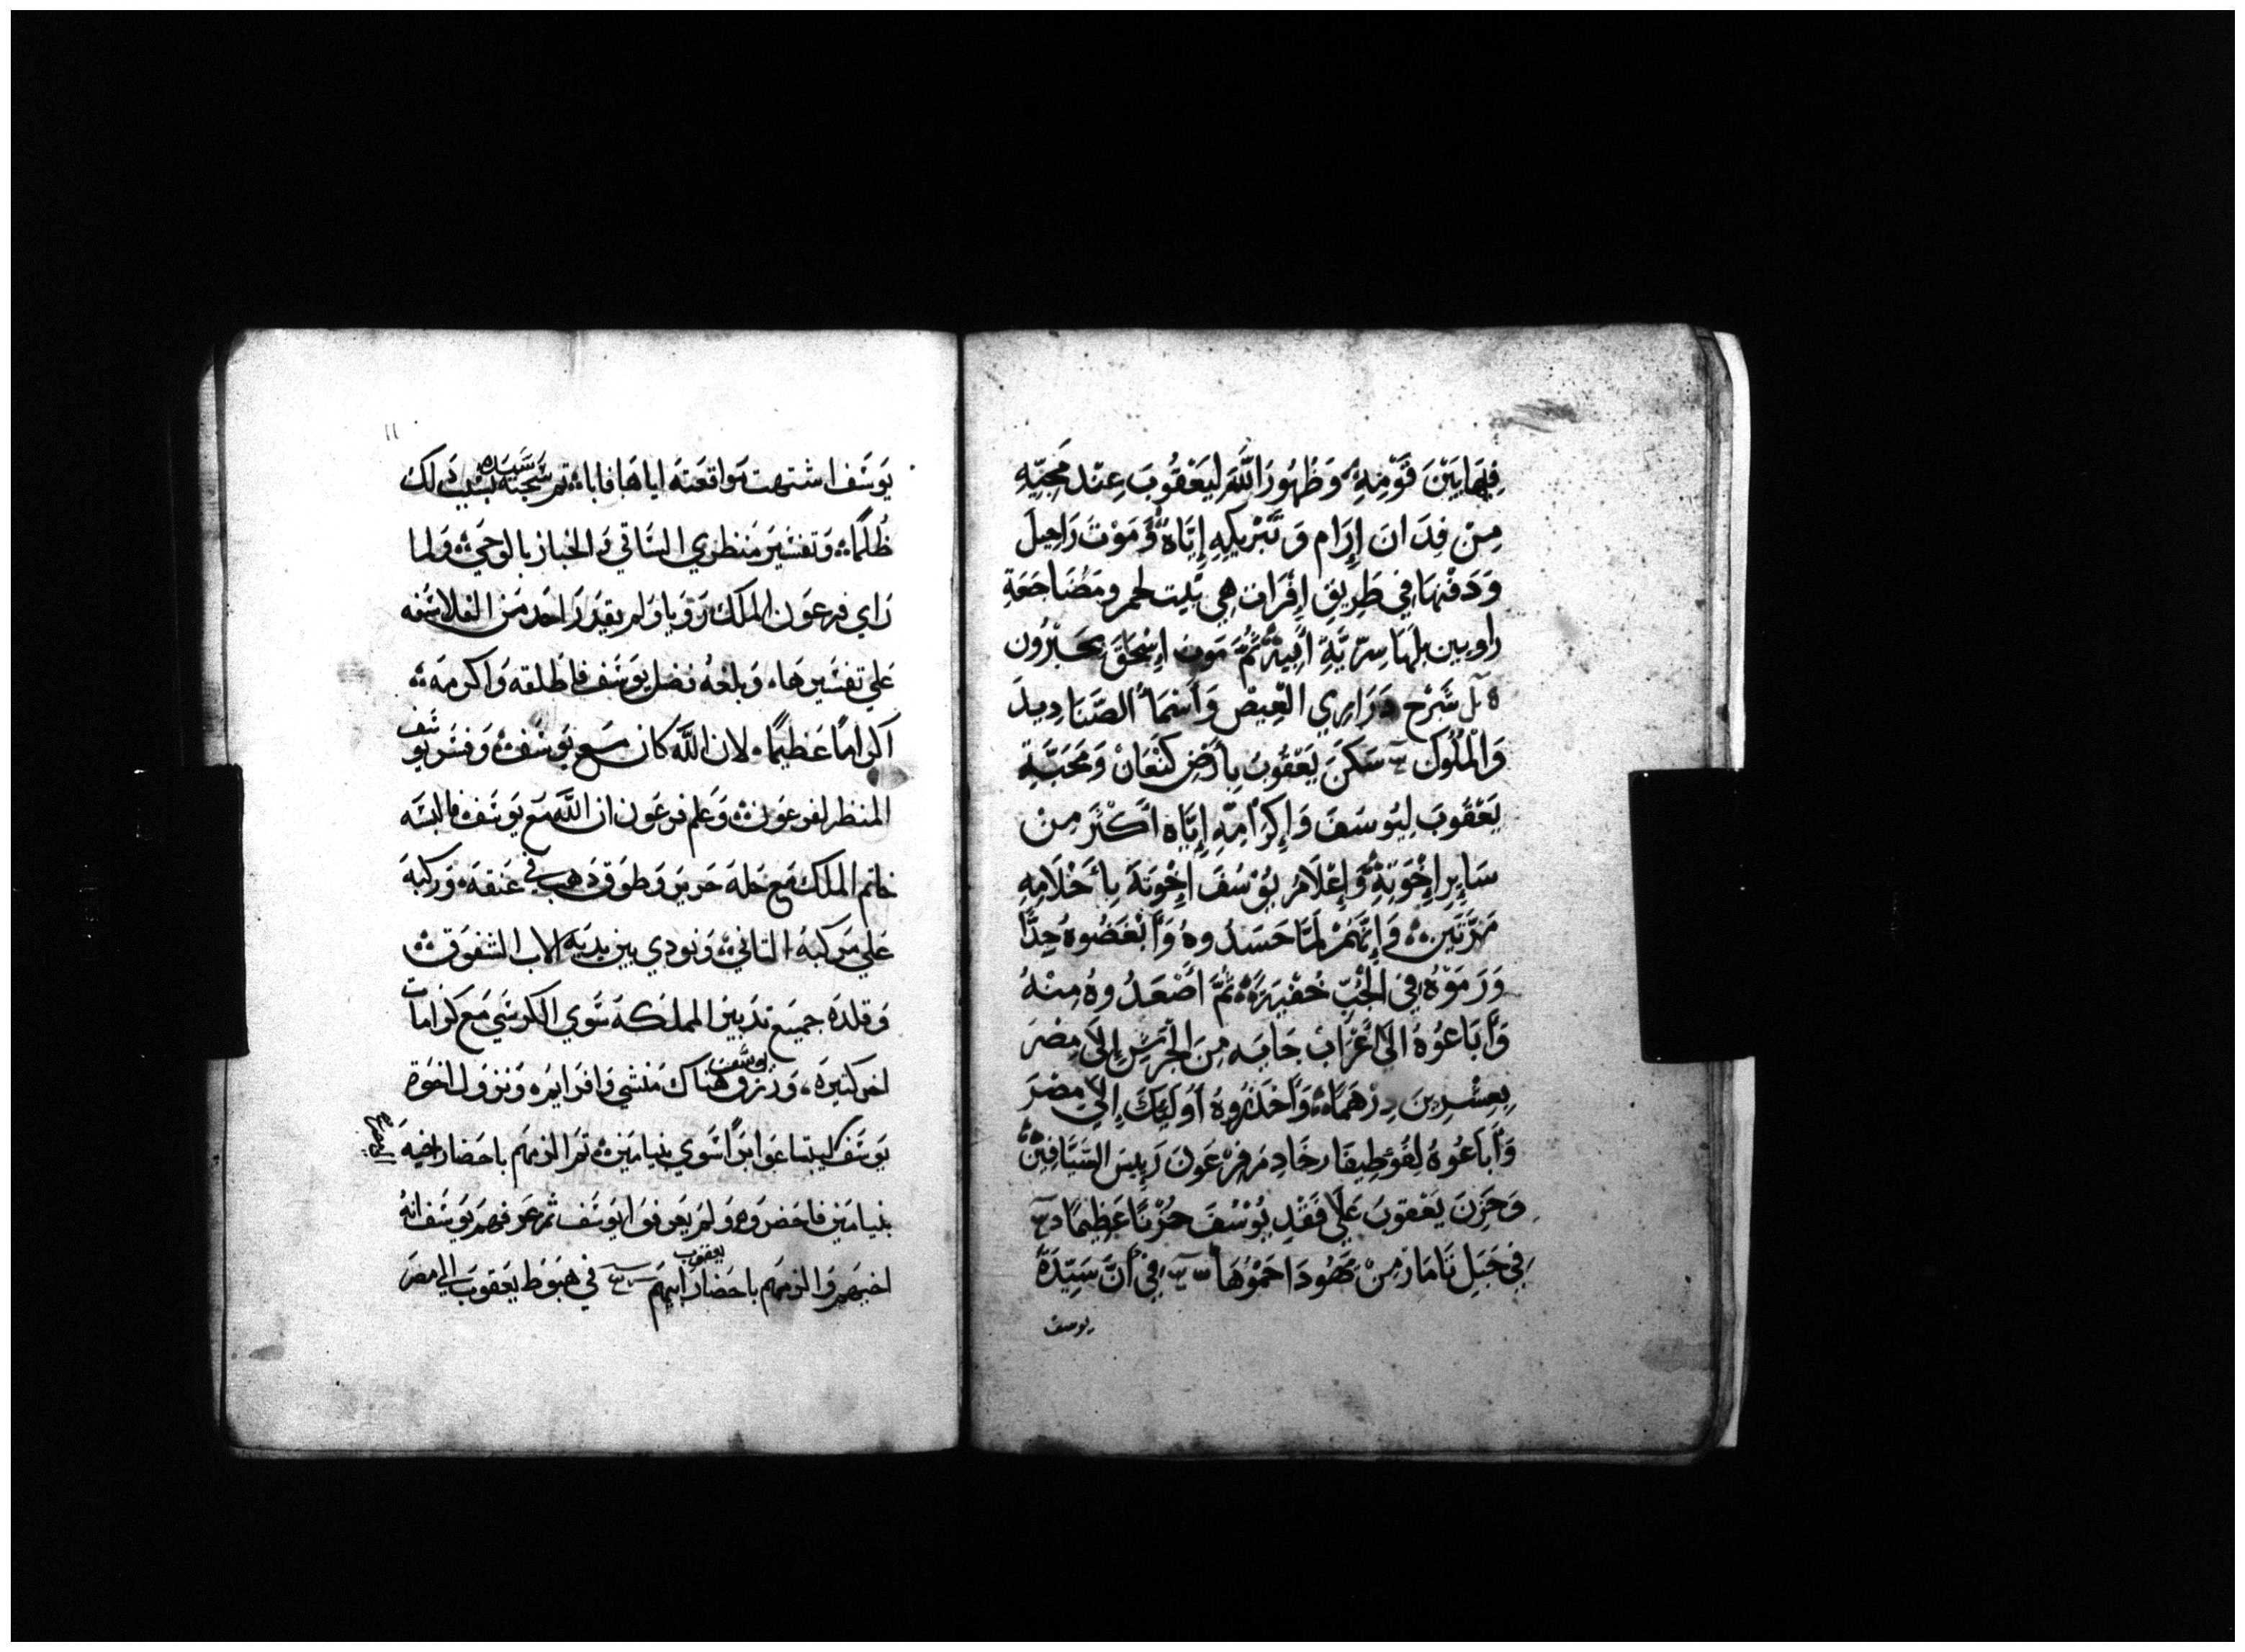 فِيهَا بَيْنَ قَوْمِهِ وَظُهُورَ اللَّهِ لِيَعْقُوبَ عِنْدَ مَجِيِّهِ
مِنْ فِدَ انَ إِرَام وَتَبْرِيكِهِ إِيَّاهُ وَمَوْتَ رَاحِيلَ
وَدَفْنِهَا فِي طَرِيقِ إِفْرَات هِي بَيت لحم ومضَاجَعَةِ
راوبين بلهَا سِرِّيَّةِ أَبِيهِ ثُمَّ مَوت إِسْحَقَ بحَبْرُون
شَرْح دَرَارِي الْعِيصْ وَأَسْمَاُ الصَّنَادِيدَ
وَالْمُلُوك سَكَنَ يَعْقُوبَ بِأَرْضِ كَنْعَانْ وَمَحَبَّةِ
يَعْقُوبَ لِيُوسَفَ وَإِكْرَامِهِ إِيَّاه أَكْثَرَ مِنْ
سَايِرِ إِخْوَتِهِ وَإِعْلَامُ يُوْسُفَ إِخْوَتَهُ بِأَحْلَامِهِ
مَرَّتَين وَإِنَّهُمْ لَمَّا حَسَدُوهُ وَأَبْغَضُوهُ جِدًّا
وَرَمَوْهُ فِي الْجُبّ ثُمَّ أَصْعَدُوهُ مِنْهُ
وَأَبَاعُوهُ الَي أَعْرَابْ جَايَه مِنَ الْجَرَشِ إِلَي مِصْرَ
بِعِشْرِينَ دِرْهَمًا وَأَخَذُوهُ أُولَيِكَ إِلَي مِصْرَ
وَأَبَاعُوهُ لِفُوطِيفَار خَادِم فِرْعَونَ رَيِيسَ السَّيَّافِينْ
وَحَزِنَ يَعْقوبَ عَلَي فَقْدِ يُوْسُفَ حُزْنًا عَظِيمًا
فِي حَبَلِ تَامَارْ مِنْ يَهُودَا حَمُوهَا فِي أَنَّ سَيِّدَةَ
يوسف
١١
يوسف اشتهت مواقعته اياها فاباه ثم سجنه سيده بسبب ذلك
ظُلمًا وتفسير منظري الساقي والخباز بالوحي ولما
راي فرعون الملك رويا ولم يقدر احد من الفلاسفه
علي تفسيرها وبلغه فضل يوسف فاطلقه واكرمه
اكرامًا عظيمًا لان اللَّه كان مع يوسف وفسر يوسف
المنظر لفرعون وعلم فرعون ان اللَّه مع يوسف فالبسه
خاتم الملك مع حله حرير وطوق ذهب في عنقه وركبه
علي مركبه الثاني ونودي بين يديه الاب الشفوق
وقلده جميع تدبير المملكه سوي الكرسي مع كرامات
اخر كثيره ورزق يوسف هناك منشي وافرايم ونزول اخوة
يوسف ليبتاعوا برًا سوي بنيامين ثم الزمهم باحضار اخيه
بنيامين فاحضروه ولم يعرفوا يوسف ثم عرفهم يوسف انهُ
اخيهم والزمهم باحضار ابيهم يعقوب في هبوط يعقوب الي مصر